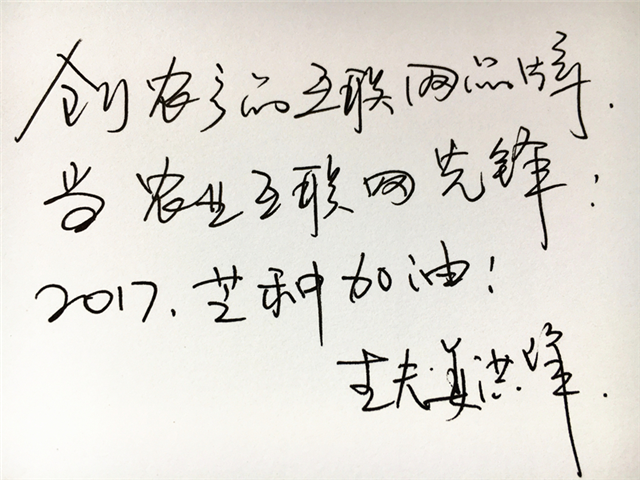 创农产品互联网品牌.
当农业互联网先锋!
2017.芒种加油!
夫姜洪峰.